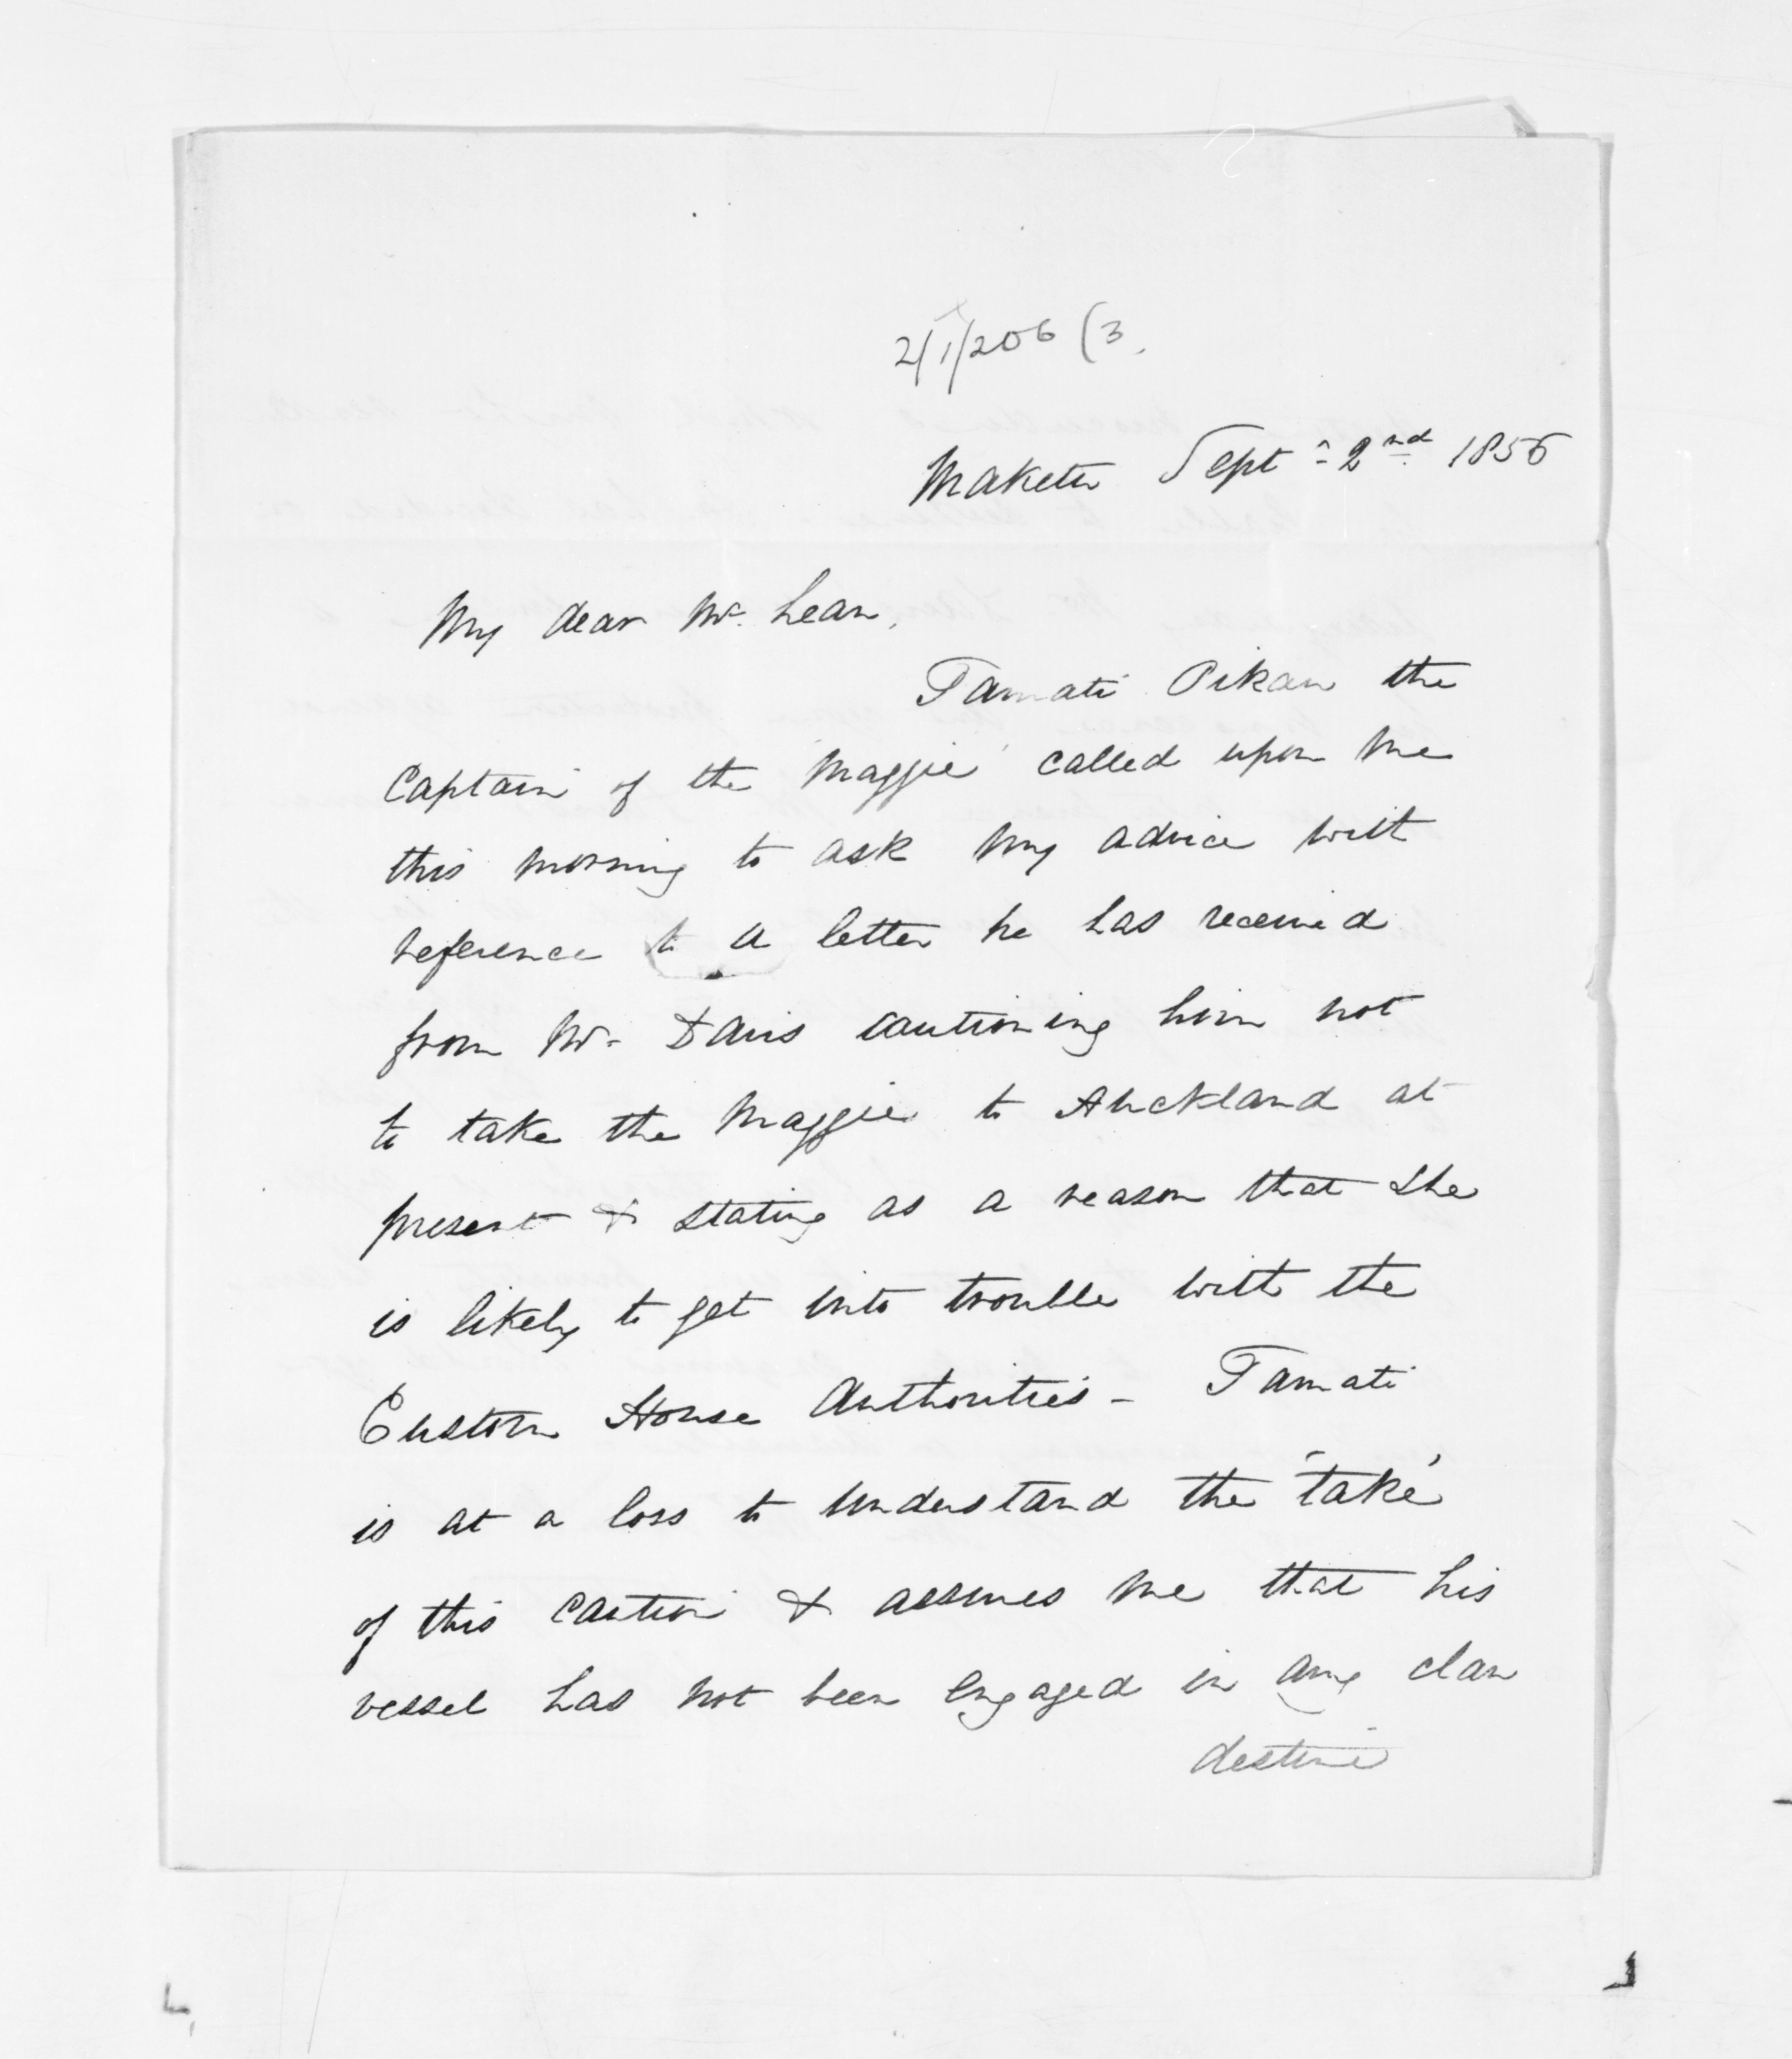 2/1/206 (3.
Maketu Septr 2nd 1856
My dear Mc. Lean,
Tamati Pikau the
Captain of the 'Maggie' called upon me
this morning to ask my advice with
reference to a letter he has received
from Mr. Davis cautioning him not
to take the Maggie to Auckland at
present & stating as a reason that she
is likely to get into trouble with the
Custom House Authorities - Tamati
is at a loss to understand the 'take'
of this caution & assures me that his
vessel has not been engaged in any clan
destine